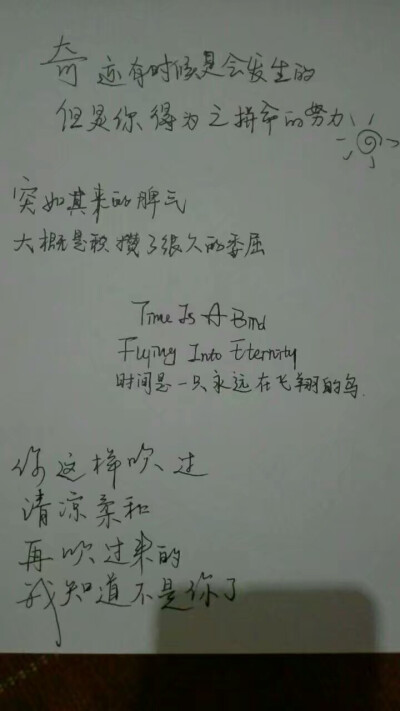 奇迹有时候是会发生的
但是你得为之拼命的努力
突如其来的脾气
大概是积攒了很久的委屈
Time Is A Bird
Flying Into Eternity
时间是一只永远在飞翔的鸟.
你这样吹过
清凉柔和
再吹过来的
我知道不是你了